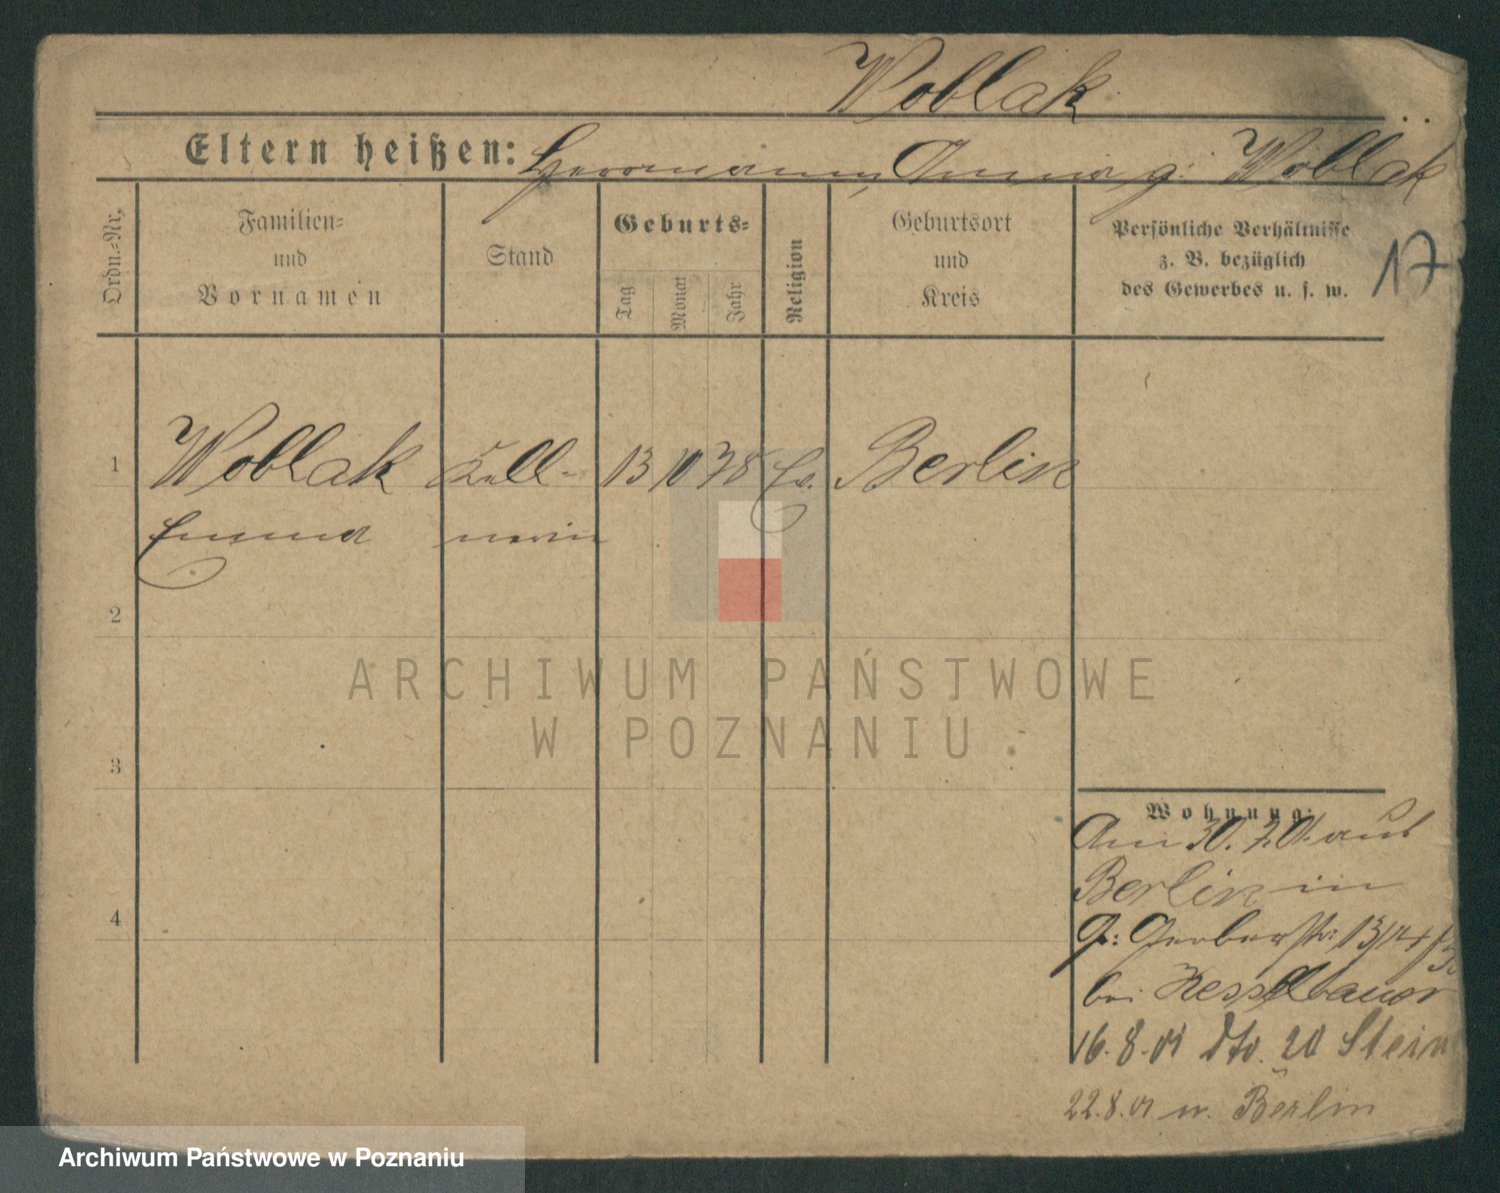 Woblak
Eltern heißen: Herrmann, Anna g: Woblak
Ordn.-Nr.
Familien-
und
Vornamen
Stand
Geburts-
Tag
Monat
Jahr
Religion
Geburtsort
und
Kreis
Persönliche Verhältnisse
z. B. bezüglich
des Gewerbes u. s. w.
17
1
Woblak Kell- 13 10 78 Ev. Berlin
Emma nerin
2
3
4
Wohnung:
Am 30. 7. 01 aus
Berlin in
P: Gerberstr: 13/14
bei Kesselbauer
16.8.01 dto. 20 Stein
22.8.01 n. Berlin
ARCHIWUM PAŃSTWOWE
W POZNANIU
Archiwum Państwowe w Poznaniu